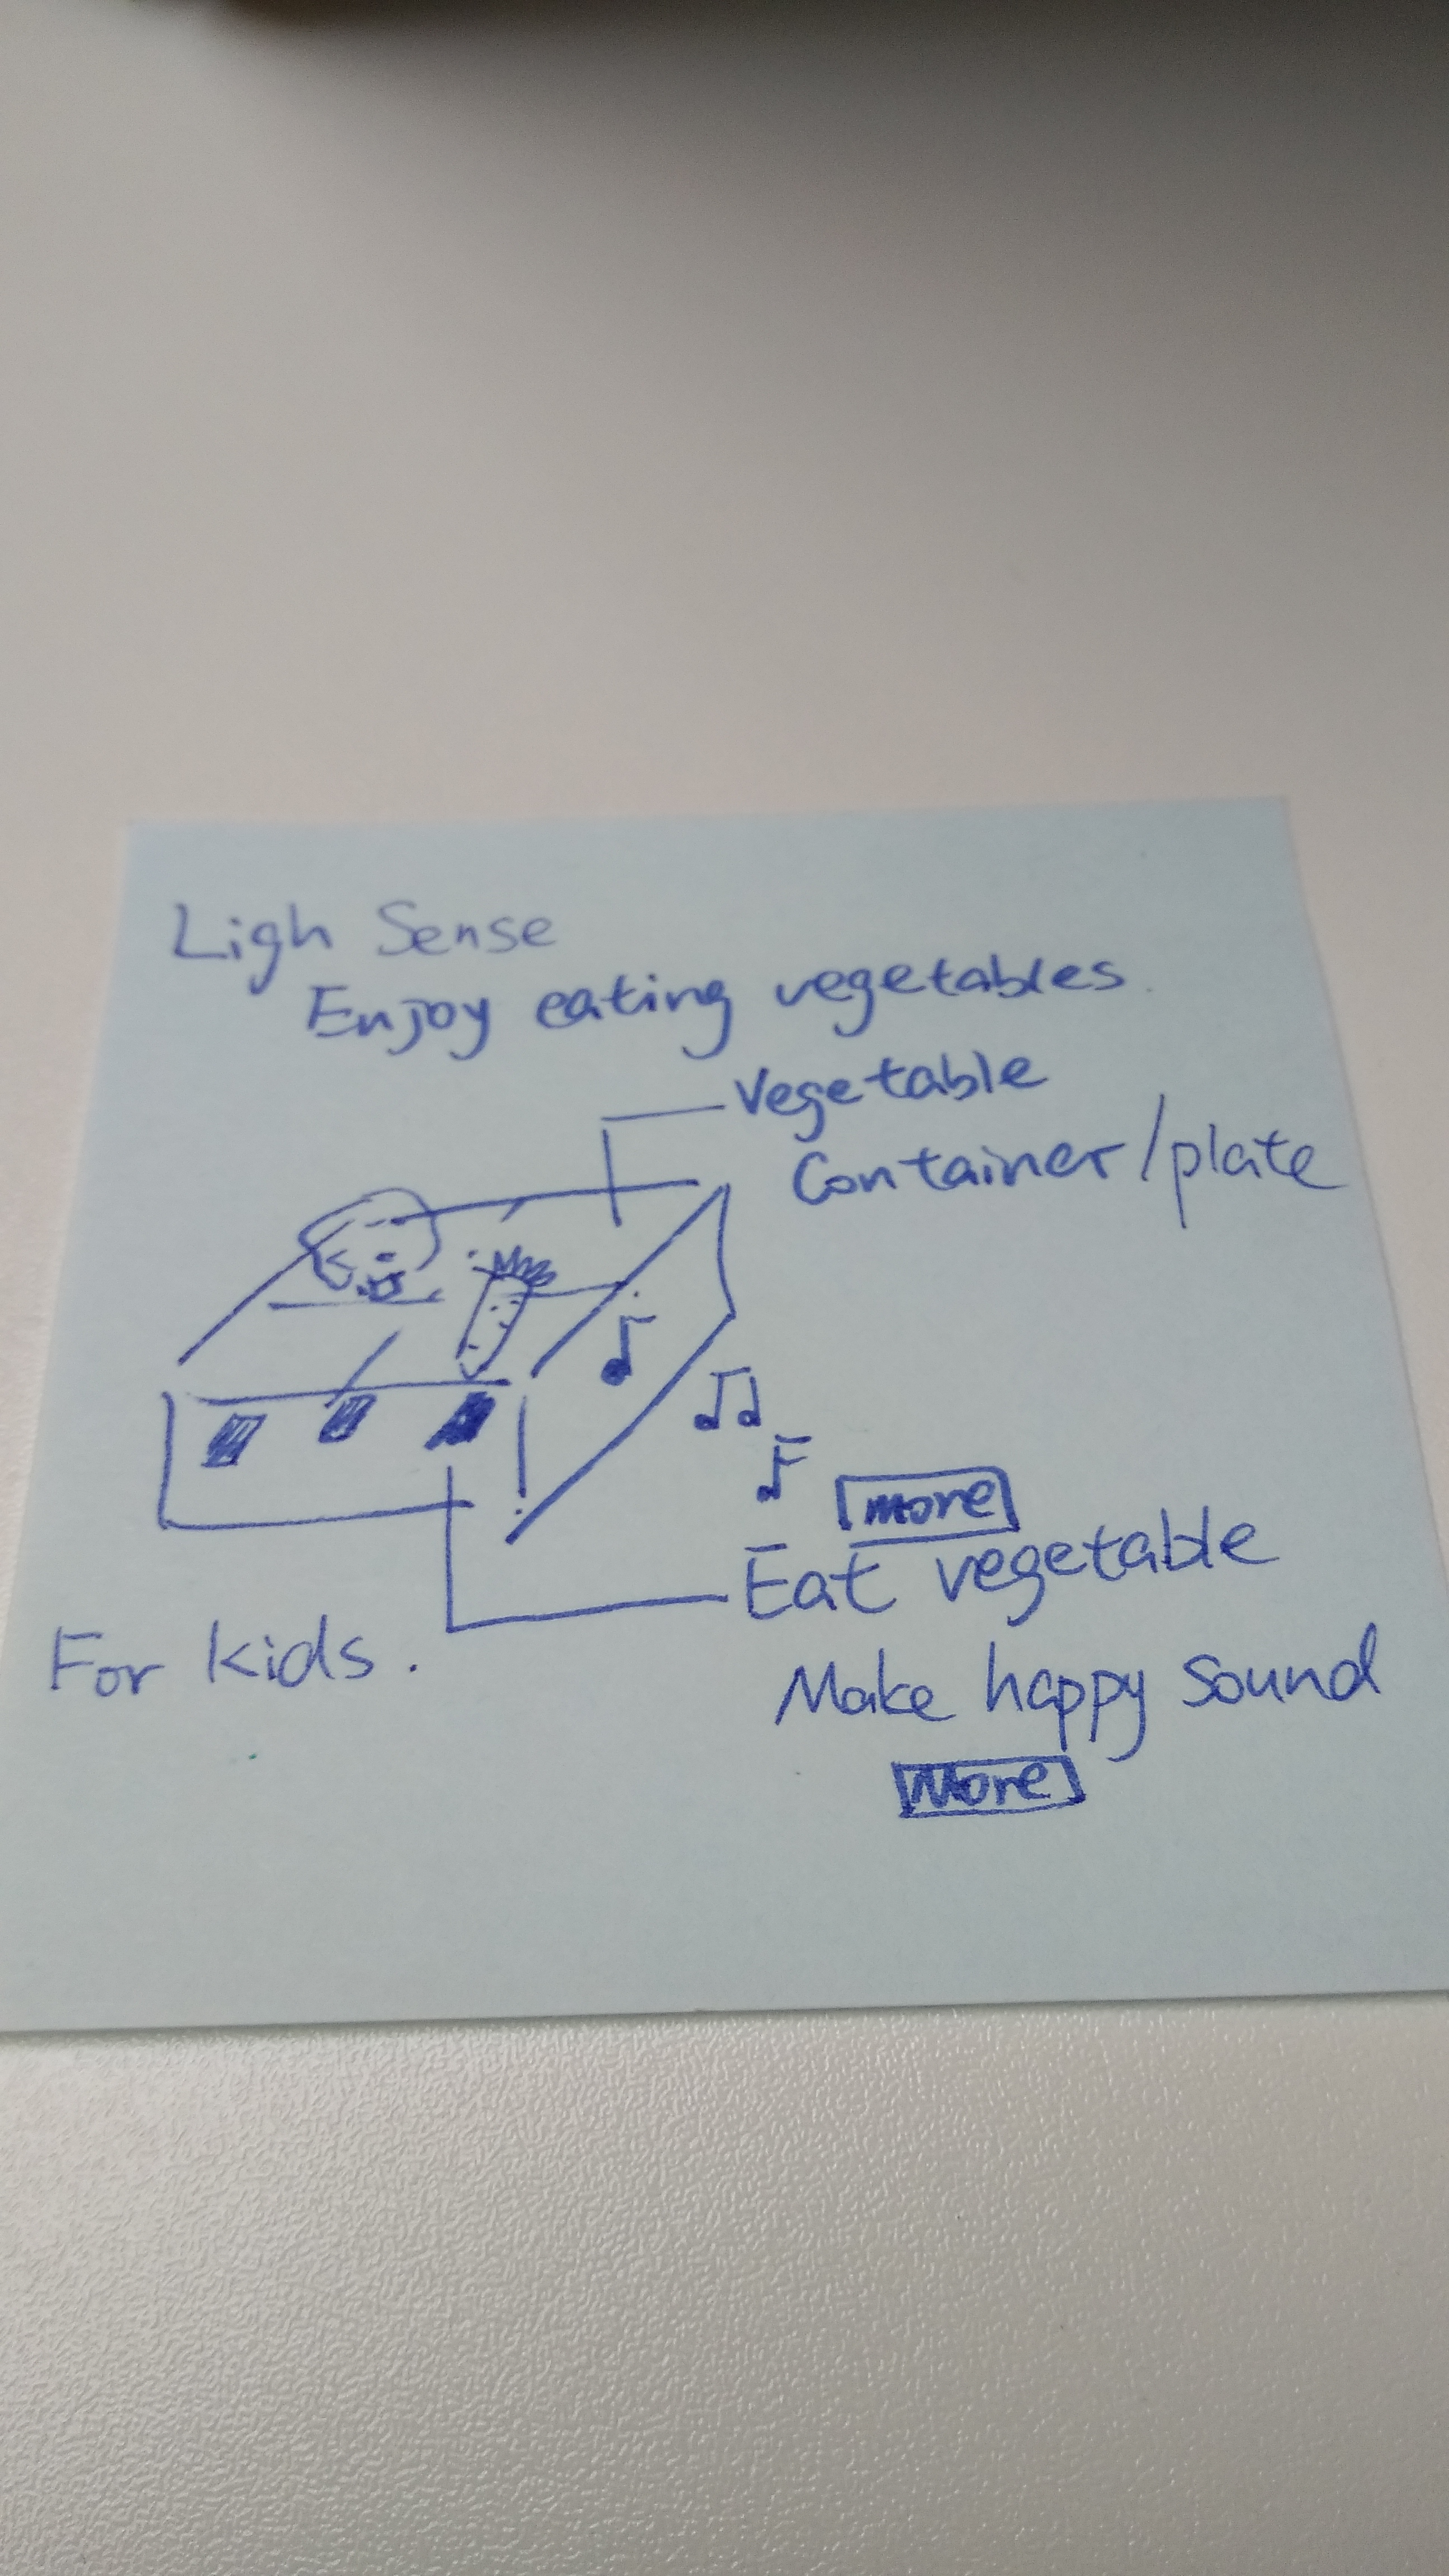 Ligh Sense
Enjoy eating vegetables.
Vegetable
Container/plate
more
Eat vegetable
Make happy sound
More
For kids.